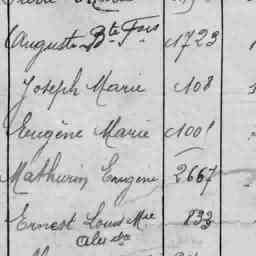 Auguste Bte Fois c1723
Joseph Marie c108
Eugène Marie c1001
Mathurin Eugene 2667
Ernest Louis Mie 833